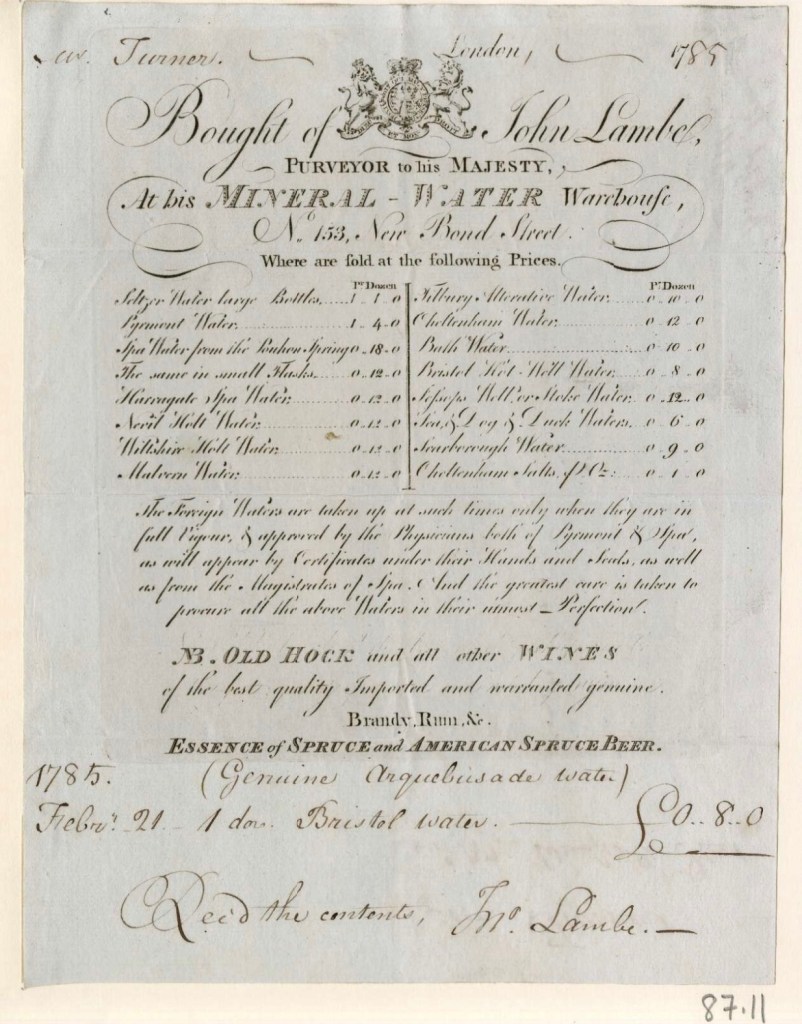 Mr. Turner. London, 1785
Bought of John Lambe,
PURVEYOR to his MAJESTY,
At his MINERAL-WATER Warehouſe,
No. 153, New Bond Street.
Where are ſold at the following Prices.
Pr. Dozen
Seltzer Water large Bottles 1 - 1 - 0
Pyrmont Water 1 - 4 - 0
Spa Water from the Pouhon Spring 0 - 18 - 0
The same in small Flasks 0 - 12 - 0
Harrogate Spa Water 0 - 12 - 0
Nevil Holt Water 0 - 12 - 0
Wiltshire Holt Water 0 - 12 - 0
Malvern Water 0 - 12 - 0
Pr. Dozen
Tilbury Alterative Water 0 - 10 - 0
Cheltenham Water 0 - 12 - 0
Bath Water 0 - 10 - 0
Bristol Hot Well Water 0 - 8 - 0
Jeſsops Well, or Stoke Water 0 - 12 - 0
Sea, & Dog & Duck Waters 0 - 6 - 0
Scarborough Water 0 - 9 - 0
Cheltenham Salts, P. Oz: 0 - 1 - 0
The Foreign Waters are taken up at such times only when they are in
full Vigour, & approved by the Physicians both of Pyrmont & Spa,
as will appear by Certificates under their Hands and Seals, as well
as from the Magistrates of Spa. And the greatest care is taken to
procure all the above Waters in their utmost Perfection.
NB. OLD HOCK and all other WINES
of the best quality Imported and warranted genuine.
Brandy, Rum, &c.
ESSENCE of SPRUCE and AMERICAN SPRUCE BEER.
1785. (Genuine Arquebusade water)
Febry. 21 - 1 doz. Bristol water. £0..8..0
Rec'd the contents, Jno. Lambe.
87.11